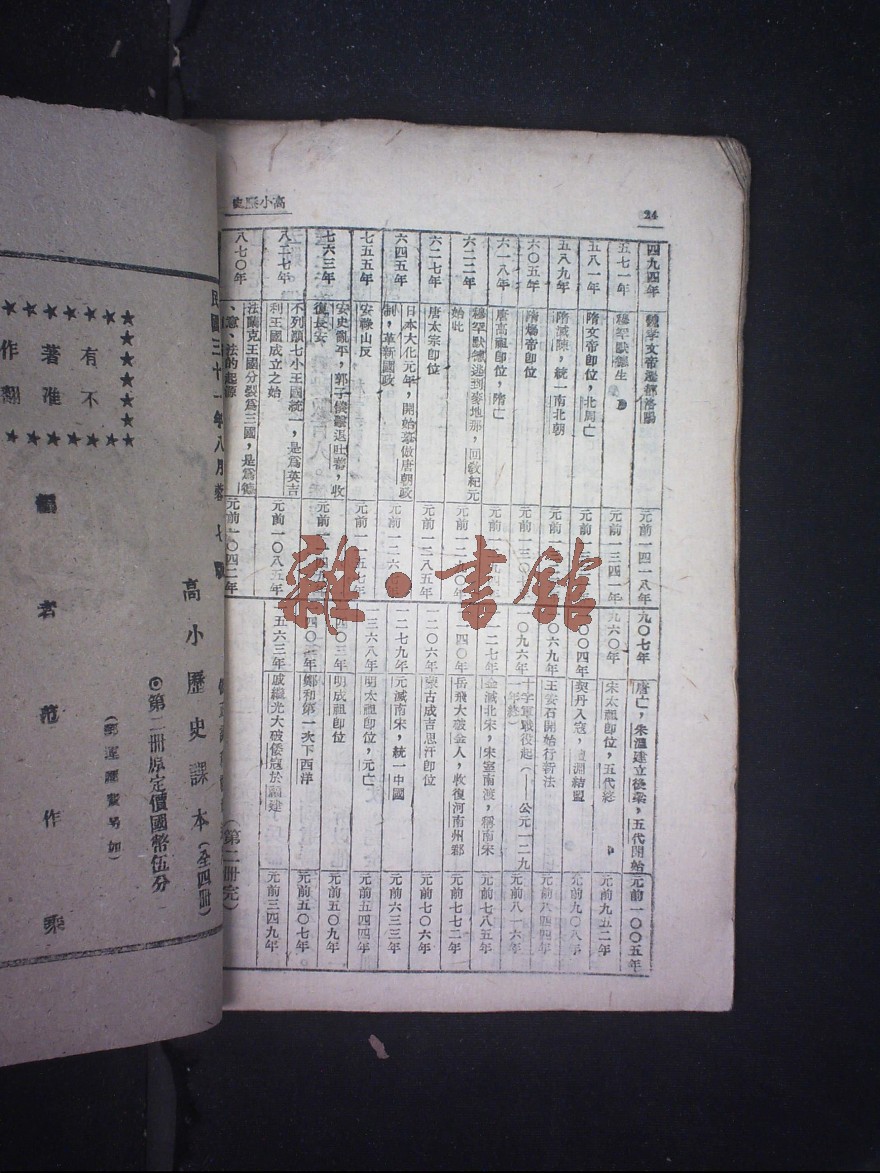 24
高小歷史
四九四年 魏孝文帝遷都洛陽 元前一四一八年
五七一年 穆罕默德生 元前一三四一年
五八一年 隋文帝卽位，北周亡
五八九年 隋滅陳，統一南北朝
六〇五年 隋煬帝卽位
六一八年 唐高祖卽位，隋亡
六二二年 穆罕默德逃到麥地那，回敎紀元始此
六二七年 唐太宗卽位 元前一二八五年
六四五年 日本大化元年，開始摹倣唐朝政制，革新國政
七五五年 安祿山反 元前一一五七年
七六三年 安史亂平，郭子儀擊退吐蕃，收復長安
八二七年 不列顚七小王國統一，是爲英吉利王國成立之始 元前一〇八五年
八七〇年 法蘭克王國分裂爲三國，是爲德、意、法的起源 元前一〇四二年
九〇七年 唐亡，朱溫建立後梁，五代開始 元前一〇〇五年
九六〇年 宋太祖卽位，五代終 元前九五二年
一〇〇四年 契丹入寇，澶淵結盟 元前九〇八年
一〇六九年 王安石開始行新法 元前八四四年
一〇九六年 十字軍戰役起（——公元一二九一年終） 元前八一六年
一一二七年 金滅北宋，宋室南渡，稱南宋 元前七八五年
一一四〇年 岳飛大破金人，收復河南州郡 元前七七二年
一二〇六年 蒙古成吉思汗卽位 元前七〇六年
一二七九年 元滅南宋，統一中國 元前六三三年
一三六八年 明太祖卽位，元亡 元前五四四年
一四〇三年 明成祖卽位 元前五〇九年
一四〇三年 鄭和第一次下西洋 元前五〇七年
一五六三年 戚繼光大破倭寇於福建 元前三四九年
（第二冊完）
民國三十一年八月 七版
高小歷史課本（全四冊）
◎第二冊原定價國幣伍分
（郵運匯費另加）
編者 范作乘
有不
著准
作翻
雜·書館